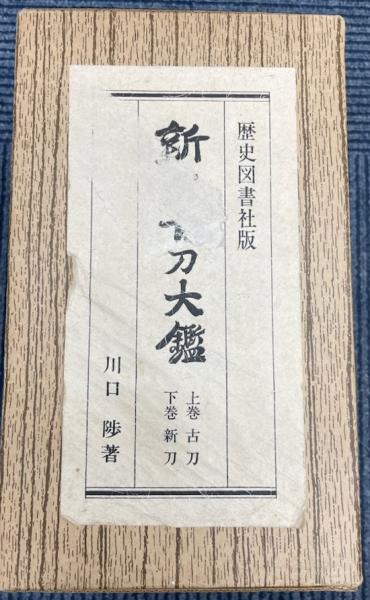 歴史図書社版
新 刀大鑑
上巻 古刀
下巻 新刀
川口 陟著